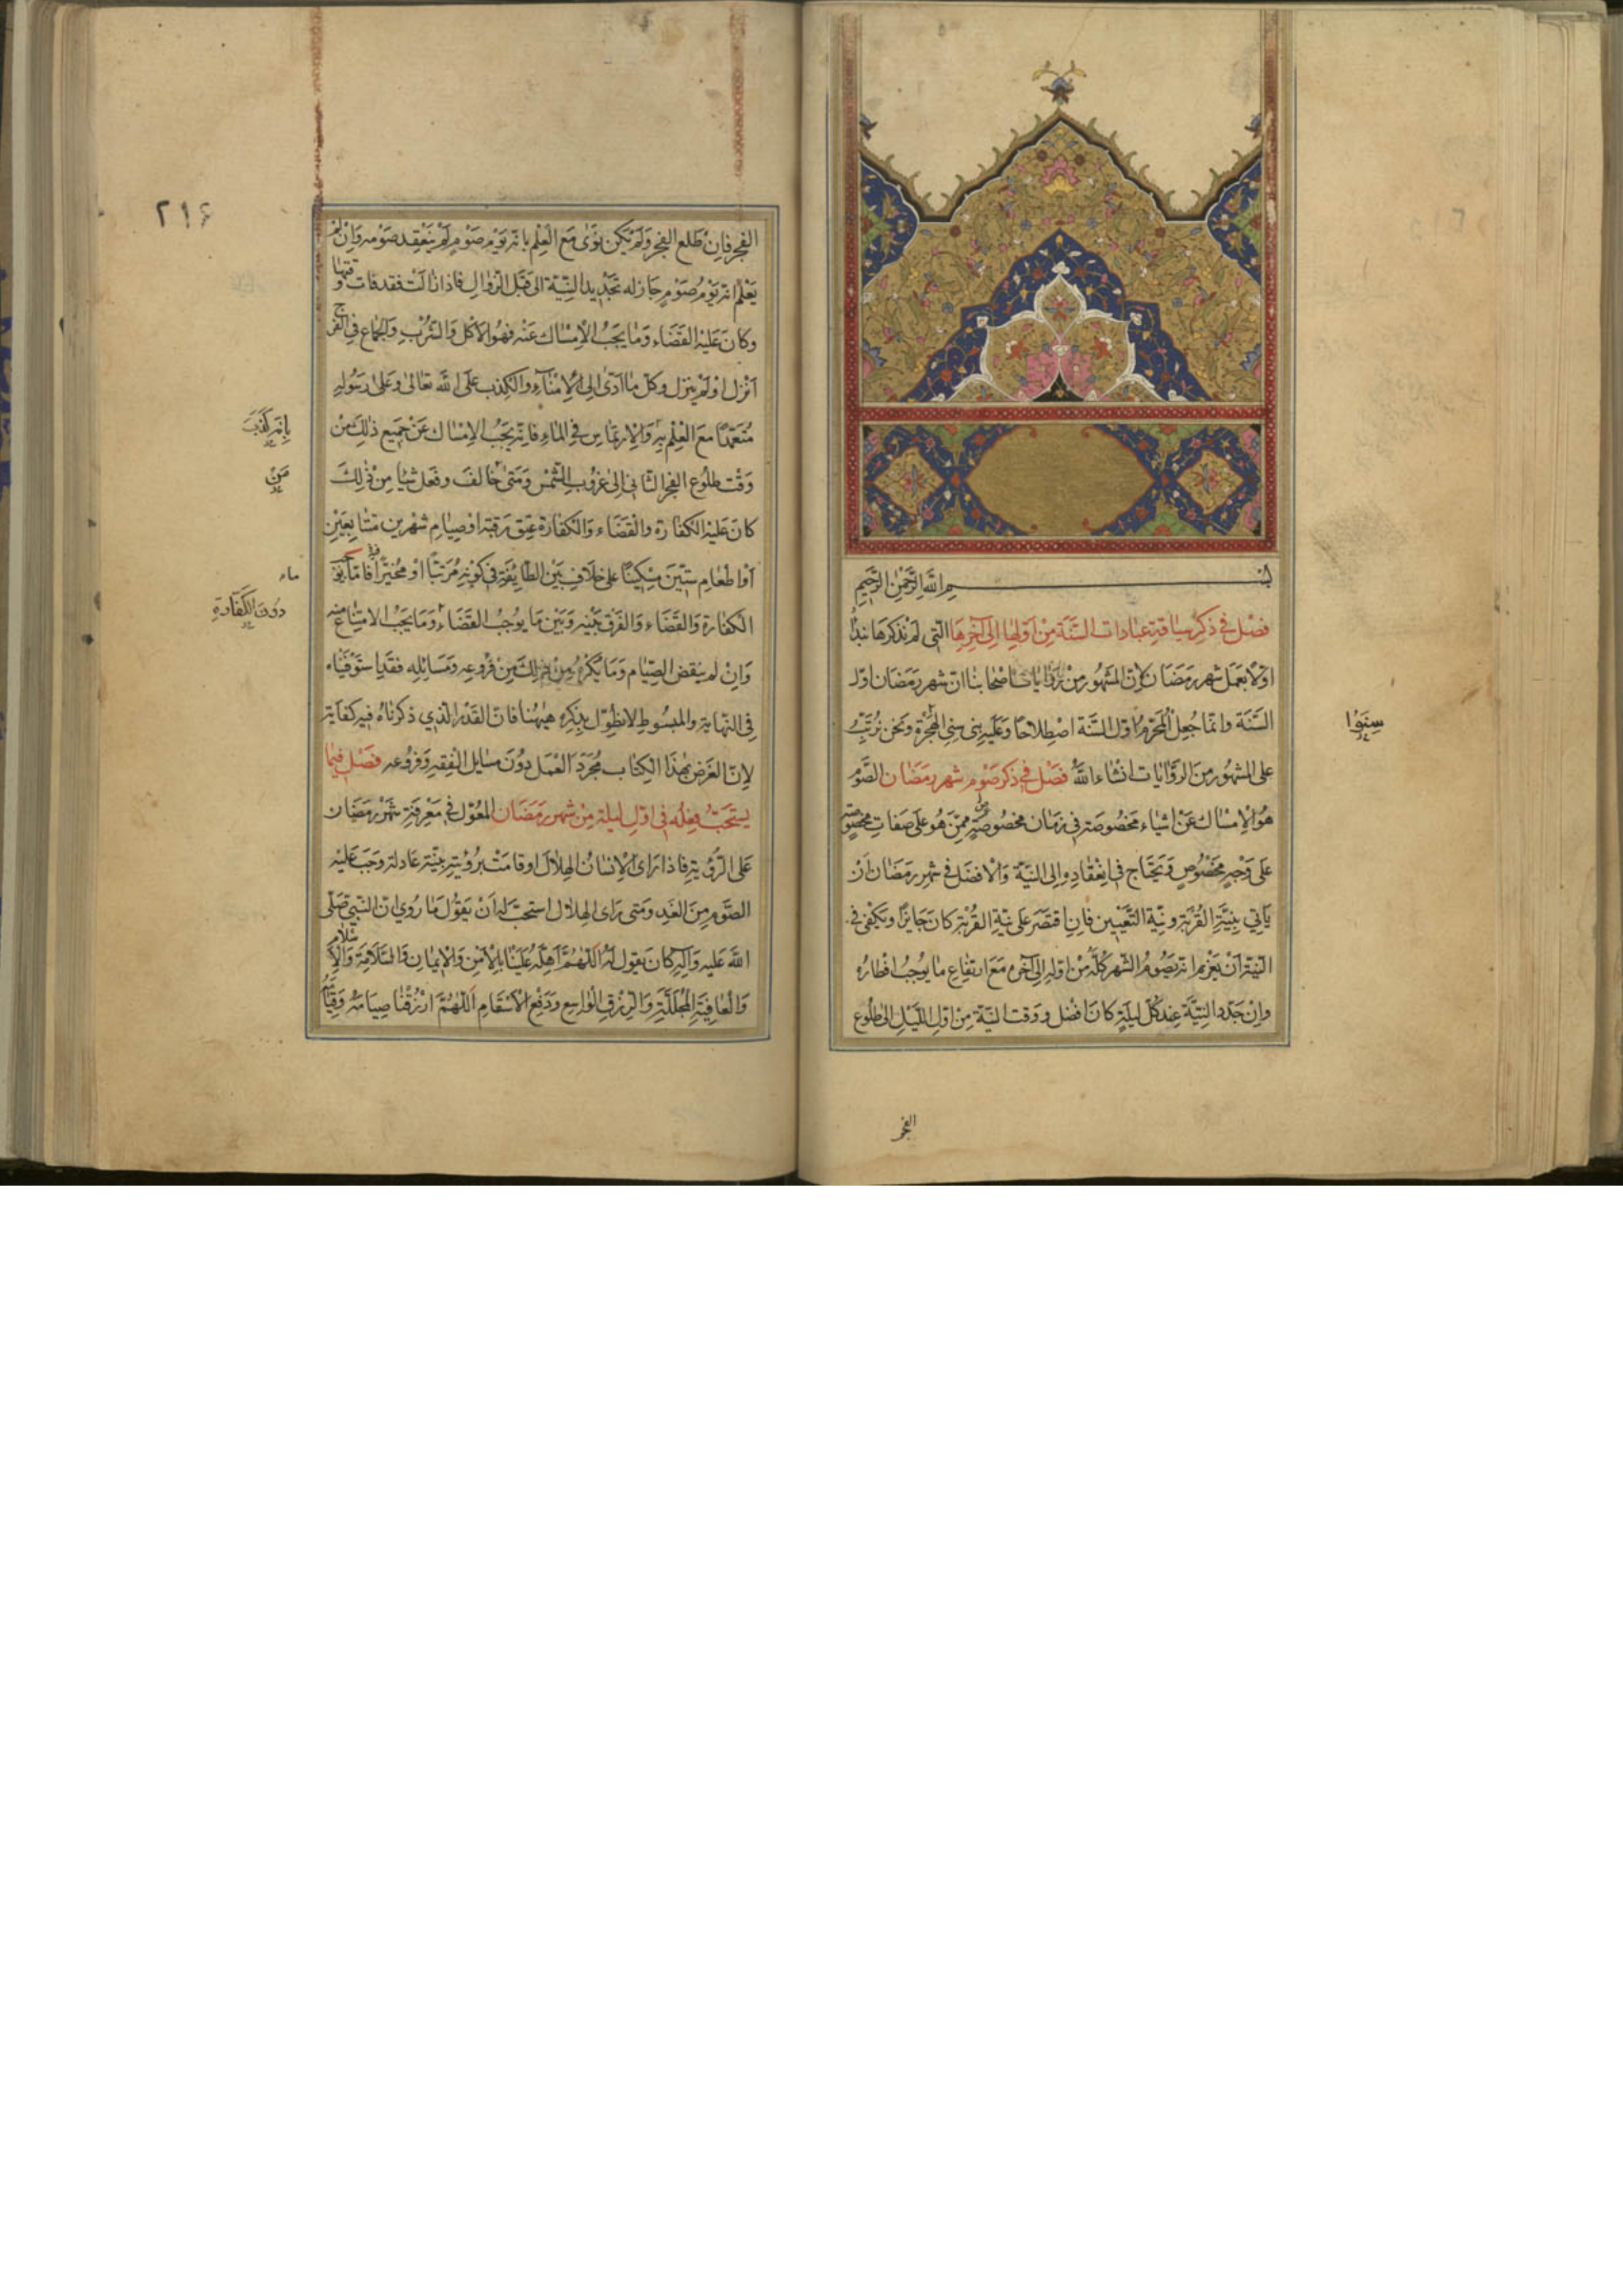 بسم الله الرحمن الرحيم
فصل في ذكر سياقة عبادات السنة من اولها الى آخرها التي لم نذكرها نبدا
اولا بعمل شهر رمضان لان المشهور من روايات اصحابنا ان شهر رمضان اول
السنة وانما جعل المحرم اول السنة اصطلاحا وعليه بنى سني الهجرة ونحن نرتب
سنوا
على المشهور من الروايات انشاء الله فصل في ذكر صوم شهر رمضان الصوم
هو الامساك عن اشياء مخصوصة في زمان مخصوص ممن هو على صفات مخصوصة
على وجه مخصوص ويحتاج في انعقاده الى النية والافضل في شهر رمضان ان
ياتي بنية القربة ونية التعيين فان اقتصر على نية القربة كان جايزا ويكفي في
النية ان يعزم انه يصوم الشهر كله من اوله الى آخره مع ارتفاع ما يوجب افطاره
وان جدد النية عند كل ليلة كان افضل ووقت النية من اول الليل الى طلوع
الفجر
٢١۶
الفجر فان طلع الفجر ولم يكن نوى مع العلم بانه يوم صوم لم ينعقد صومه وان لم
يعلم انه يوم صوم جاز له تجديد النية الى قبل الزوال فاذا زالت فقد فات وقتها
وكان عليه القضاء وما يجب الامساك عنه فهو الاكل والشرب والجماع في الفرج
انزل او لم ينزل وكل ما ادى الى الامناء والكذب على الله تعالى وعلى رسوله
متعمدا مع العلم به والارتماس في الماء فانه يجب الامساك عن جميع ذلك من
بانه كذب
وقت طلوع الفجر الثاني الى غروب الشمس ومتى خالف وفعل شيئا من ذلك
من
كان عليه الكفارة والقضاء والكفارة عتق رقبة او صيام شهرين متتابعين
او اطعام ستين مسكينا على خلاف بين الطايفة في كونه مرتبا او مخيرا فاما
ماء
الكفارة والقضاء والفرق بينه وبين ما يوجب القضاء وما يجب الامتناع منه
دون الكفارة
وان لم ينقض الصيام وما يكره من ذلك من فروعه ومسائله فقد استوفيناه
في النهاية والمبسوط لا نطول بذكره هيهنا فان القدر الذي ذكرناه فيه كفاية
لان الغرض بهذا الكتاب مجرد العمل دون مسايل الفقه وفروعه فصل فيما
يستحب فعله في اول ليلة من شهر رمضان المعول في معرفة شهر رمضان
على الرؤية فاذا راى الانسان الهلال او قامت برؤيته بينة عادلة وجب عليه
الصوم من الغد ومتى راى الهلال استحب له ان يقول ما روي ان النبي صلى
الله عليه وآله كان يقول له اللهم اهله علينا بالامن والايمان والسلامة والاسلام
والعافية المجللة والرزق الواسع ودفع الاسقام اللهم ارزقنا صيامه وقيامه